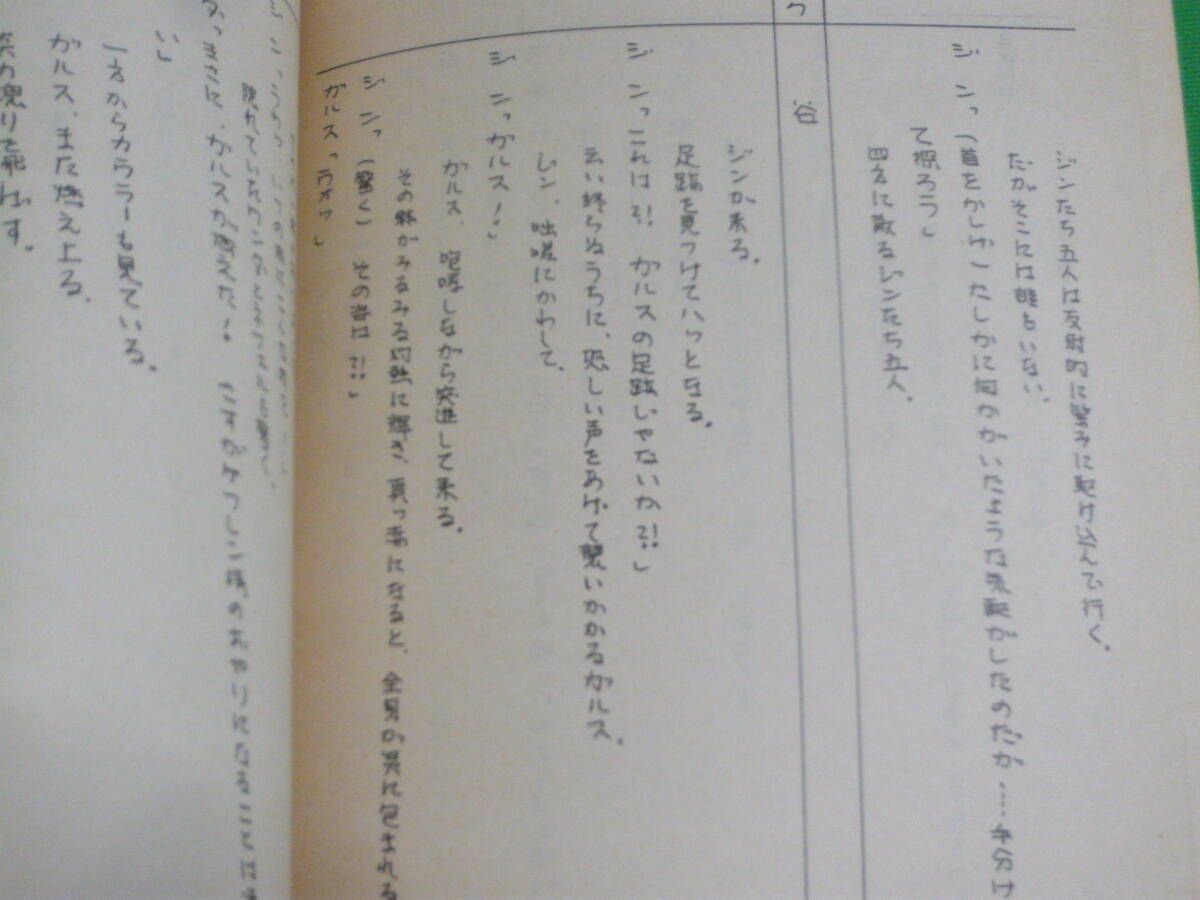 ジンたち五人は反射的に繁みに駈け込んで行く。
だがそこには誰もいない。
ジン「（首をかしげ）たしかに何かがいたような気配がしたのだが……手分け
て探ろう」
四方に散るジンたち五人。
ク 谷
ジンが来る。
足跡を見つけてハッとなる。
ジン「これは?! ガルスの足跡じゃないか?!」
云い終らぬうちに、恐しい声をあげて襲いかかるガルス。
ジン、咄嗟にかわして、
ジン「ガルス！」
ガルス、咆哮しながら突進して来る。
その体がみるみる灼熱に輝き、真っ赤になると、全身が炎に包まれる
ジン「（驚く）その姿は?!」
ガルス「ラオッ」
隠れていた
まさに、ガルスが燃えた！
い」
一方からカウラーも見ている。
ガルス、また燃え上る。
炎の塊りを飛ばす。